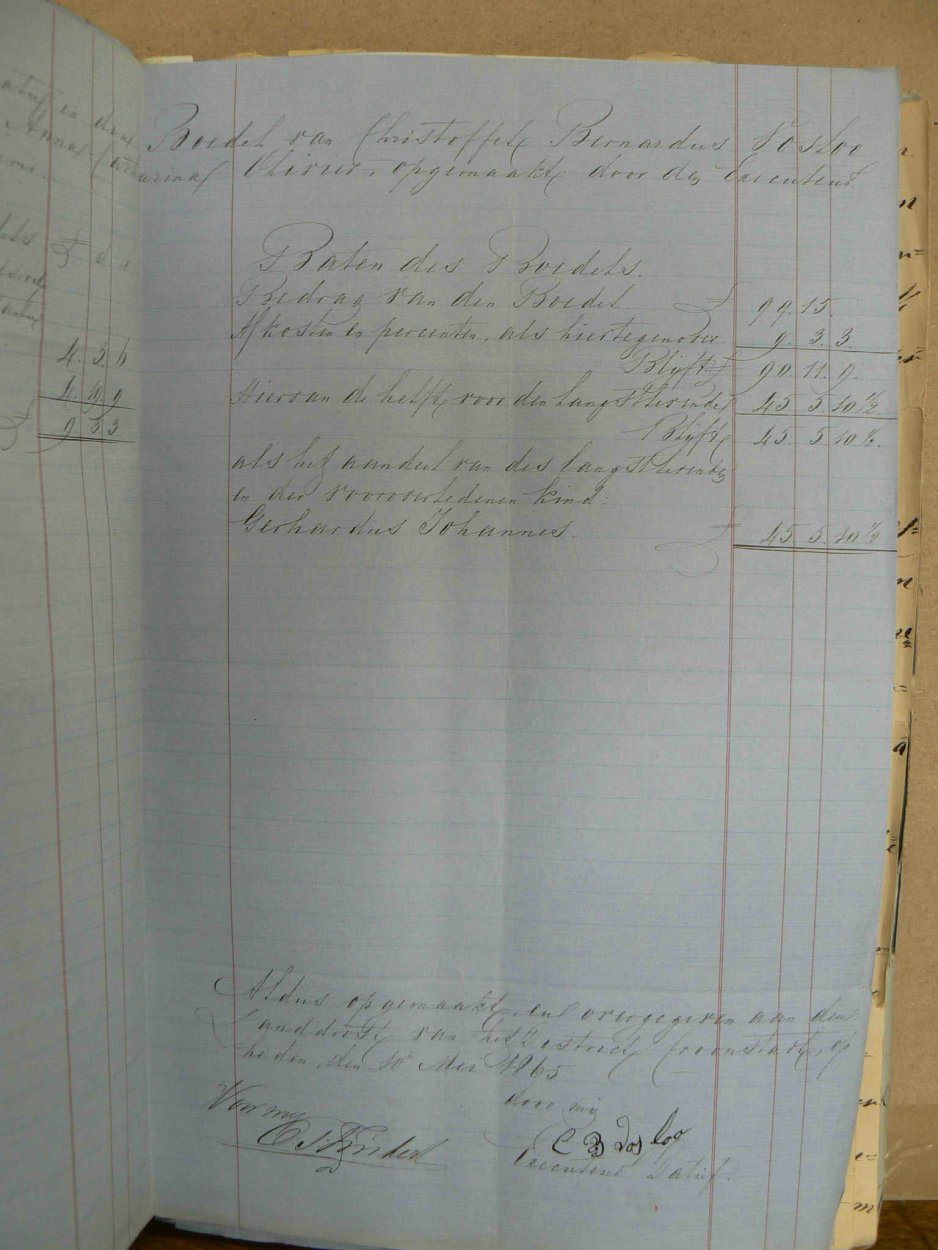 4. 3. 6
4. 19. 9
£ 9 3 3
Boedel van Christoffel Bernardus Vosloo
Olivier, opgemaakt door den Executeur
Baten des Boedels.
Bedrag van den Boedel £ 99. 15.
Afkosten en percenten, als hiertegenover 9. 3. 3
Blijft £ 90. 11. 9.
Hiervan de helft voor den langstlevende 45 5 10 ½
Blijft 45 5 10 ½.
als het aandeel van des langstlevende
en den vooroverledenen kind:
Gerhardus Johannes. £ 45 5 10 ½
Aldus opgemaakt en overgegeven aan den
Landdrost van het District Croonstadt, op
heden, den 10 Mei 1865
door mij
Voor my
C B Vosloo
Executeur Datief.